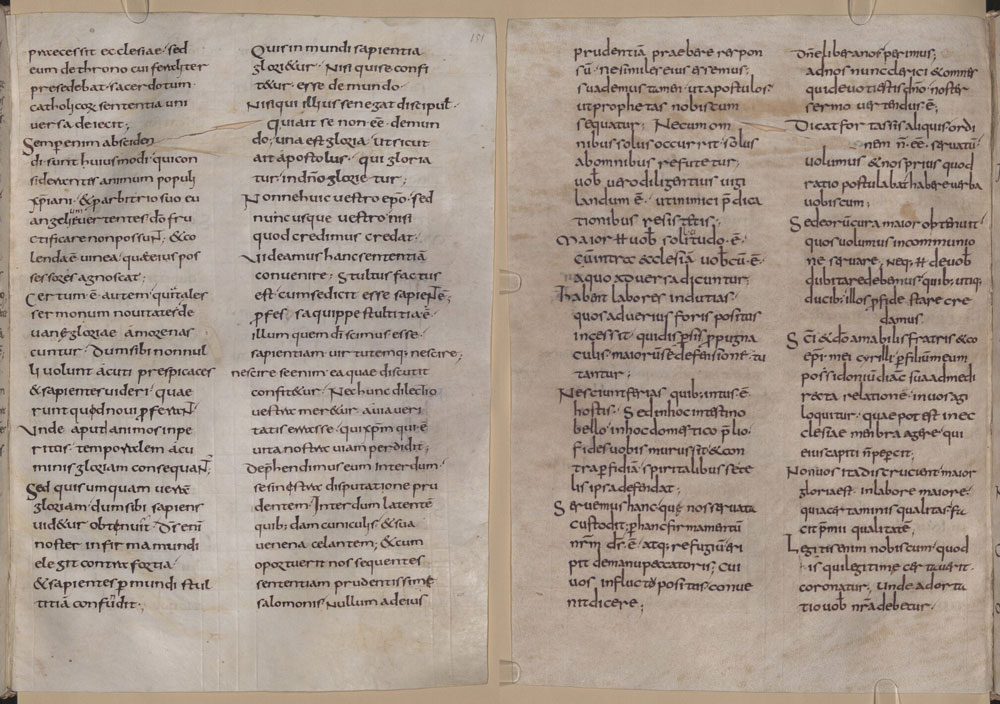 praecessit ecclesiae · sed
eum de throno cui fenditer
presedebat · sacerdotum
catholicoꝝ sententia uni
uersa deiecit;
Semper enim absciden
di sunt huiusmodi · qui con
siderantes animum populi
xp̄iani · & parbitrio suo eu
angelium uertentes do fru
ctificare non possunt; & co
lenda ē uinea · quae eius pos
sessores agnoscat;
Certum ē autem quitales
sermonum nouitates de
uane gloriae amore nas
cuntur · Dum sibi nonnul
li uolunt acuti perspicaces
& sapientes uideri · quae
runt quod noui pferant
Unde aput animos inpe
ritos · temporalem acu
minis gloriam consequant;
Sed quis umquam ueram
gloriam · dum sibi sapiens
uid&ur obtenuit · D̄s enī
noster infirma mundi
elegit contra fortia ·
& sapientes p̄ mundi stul
titiam confudit;
151
Quis in mundi sapientia
glori&ur · Nisi qui se confi
t&ur · esse de mundo ·
Nisi qui illius se negat discipul·
Qui ait se non ēe · de mun
do; una est gloria · ut sicut
ait apostolus · qui gloria
tur · in dn̄o glorie tur;
Non nehuic uestro ep̄o · sed
nunc usque uestro nisi
quod credimus credat·
Uideamus hanc sententiā
conuenire · Stultus factus
est · cum se dicit esse sapientē;
pfes saquippe stultitia ē·
illum quem dicimus esse·
sapientiam uirtutemq; nescire;
nescire se enim ea quae discutit
confit&ur · Nec hunc dilectio
uestra mer&ur · a uia ueri
tatis errasse · qui xp̄m qui ē
uita nostra uiam perdidit;
Deprehendimus eum interdum·
se sin istra disputatione pru
dentem · Interdum latentē
quib; dam cuniculis · & sua
uenena celantem; & cum
oportuerit nos sequentes
sententiam prudentissimę
salomonis · Nullum ad eius
prudentiā praebere respon
sū · ne similes eius eresemus;
suademus tamen · ut apostolus
ut prophetas nobiscum
sequatur; Necum om
nibus solus occurrit · solus
ab omnibus refutetur;
uob̄ uero diligentius uigi
landum ē · ut inimici p̄dica
tionibus resistatis;
Maior ħ uob̄ solicitudo · ē·
cū intra ecclesiā uob̄cū · ē·
a quo aduersa dicuntur;
habent labores indutias·
quos aduerius foris positus
incessit · quidisp̄sis ppugna
culis maiorū se defensione tu
tantur;
Nesciunt ferias quib; intus ē·
hostis · Sed in hoc intestino
bello · in hoc domestico p̄lio·
fides uobis murus sit · & con
tra pfidiā · spiritalibus se te
lis ipsa defendat;
Seruemus hanc · quę nos seruata
custodit; p hanc firmamentū
nr̄m dr̄ · ē· atq; refugiū eri
pit de manu peccatoris; cui
uos in fluctō positos · conue
nit dicere;
dn̄e libera nos perimus;
ad nos nunc clerici & omnes
qui deuoti estis dn̄o noster
sermo uertendus ē;
Dicat fortassis aliquis ordi
nem n̄ ēe · seruatū·
volumus & nos prius quod
ratio postulabat habere uerba
uobiscum;
Sed eorū cura maior obtenuit·
quos uolumus in communio
ne seruare; neq; ħ de uob̄
dubitare debemus · quib; utiq;
ducib; illos p fide stare cre
damus
Sc̄i & dō amabilis fratris & co
ep̄i mei cyrilli · p filiū meum
possidoniū diac̄ · sua ad me di
recta relatione · in uos agi
loquitur · quae potest in ec
clesiae membra agere · qui
eius capiti n̄ percit;
Non uos ita discrucient maior
gloria est · in labore maiore·
quia certaminis qualitas · fa
cit p̄mii qualitatē;
Legistis enim nobiscum · quod
is qui legitime certauerit·
coronatur; unde adorta
tio uob̄ nr̄a debetur·